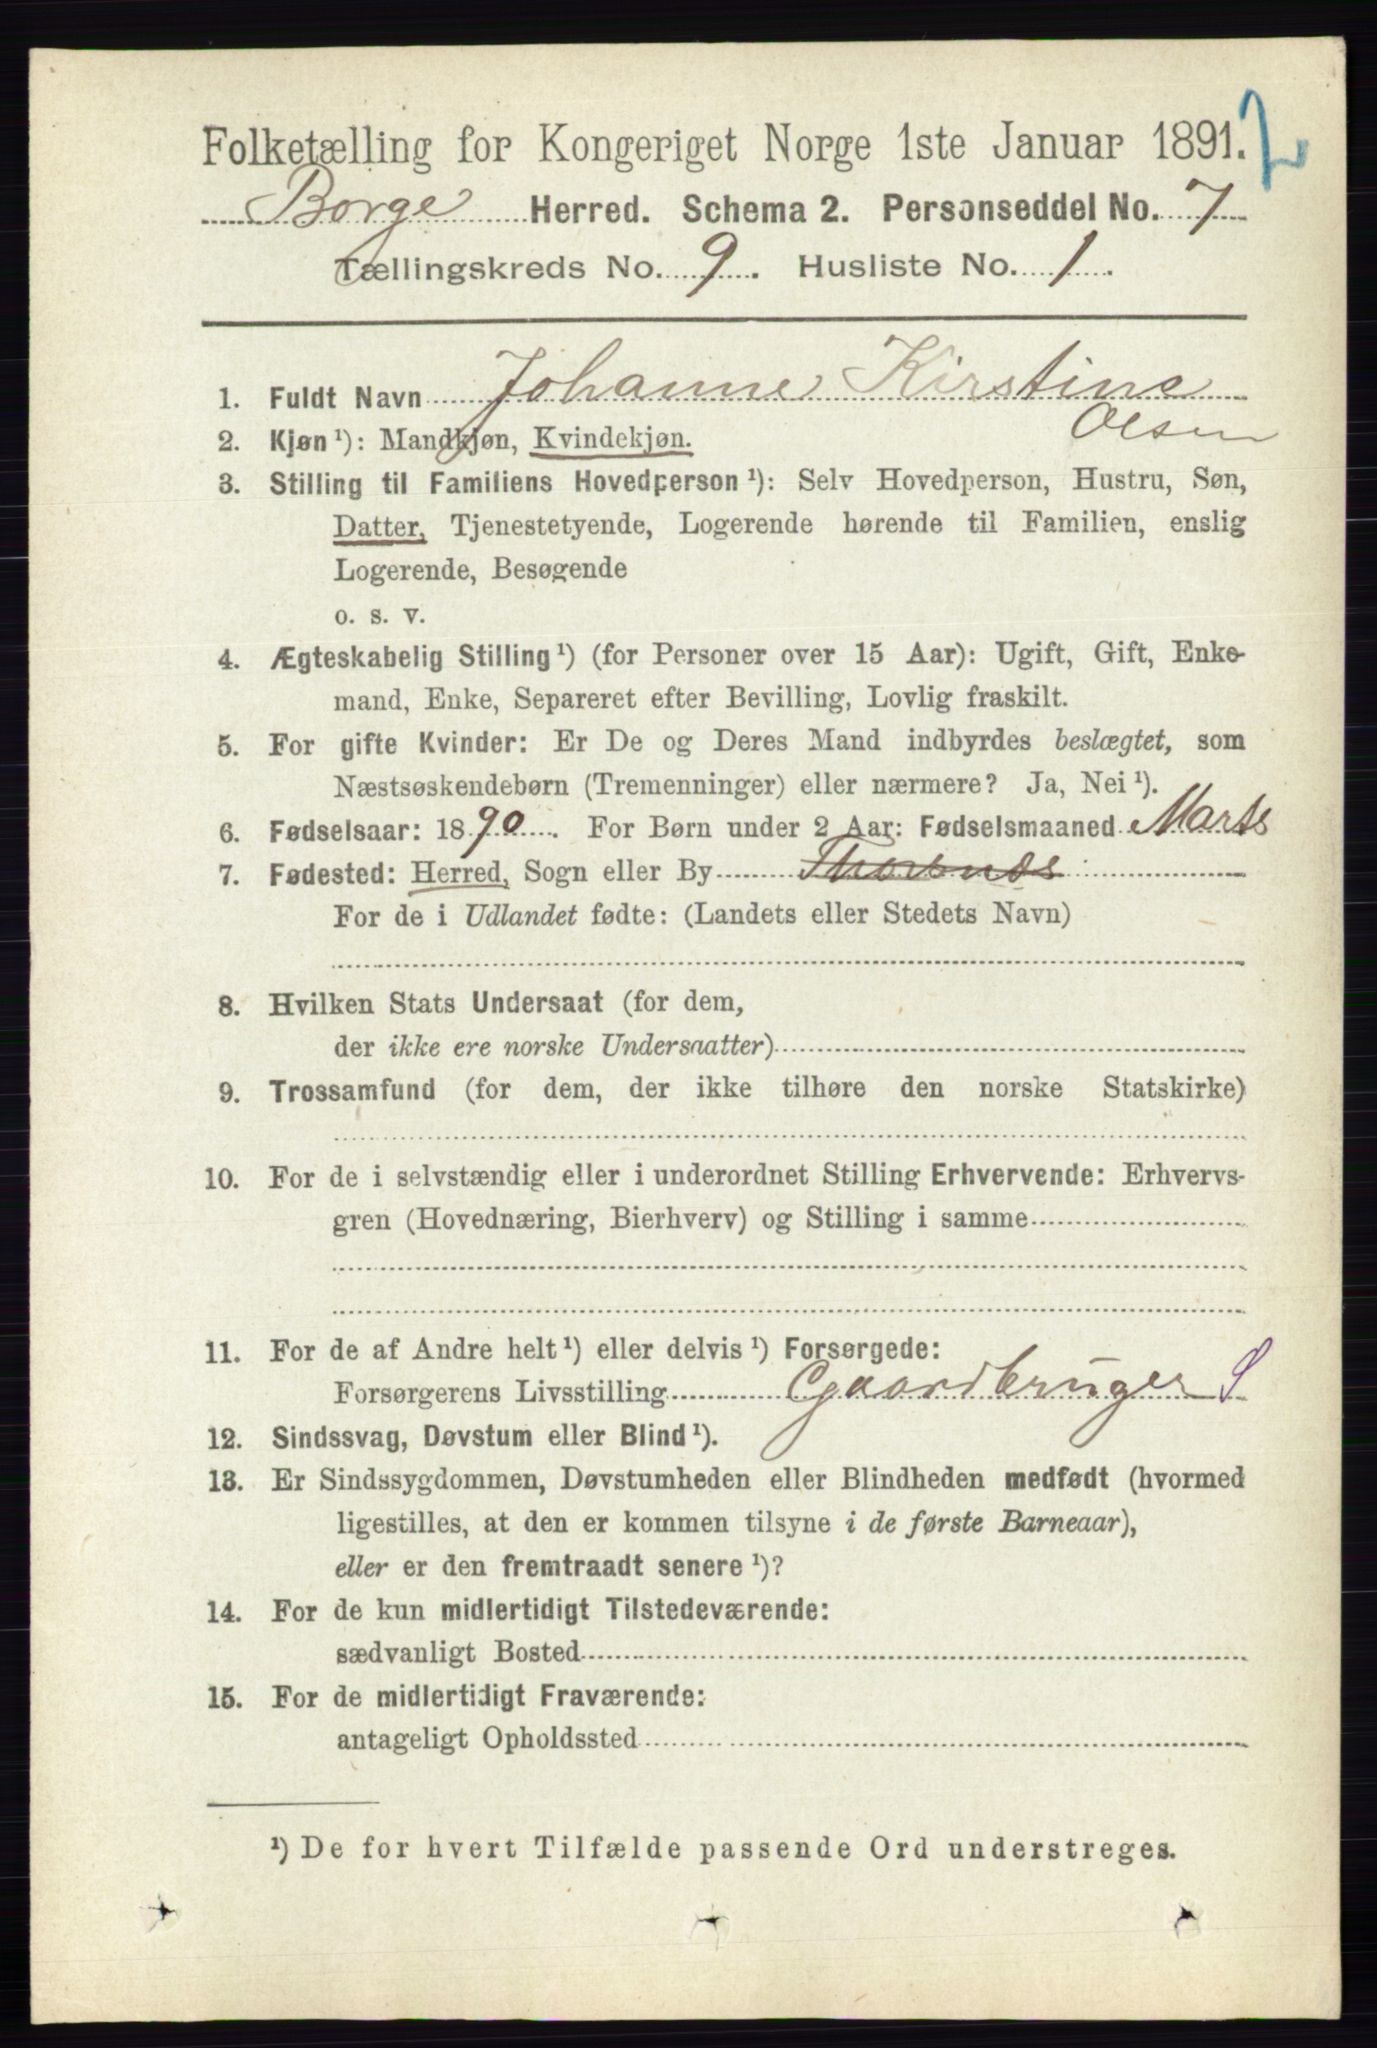 Folketælling for Kongeriget Norge 1ste Januar 1891. 2
Borge Herred. Schema 2. Personseddel No. 7
Tællingskreds No. 9. Husliste No. 1.
1. Fuldt Navn Johanne Kirstine
Olsen
2. Kjøn ¹): Mandkjøn, Kvindekjøn.
3. Stilling til Familiens Hovedperson ¹): Selv Hovedperson, Hustru, Søn,
Datter, Tjenestetyende, Logerende hørende til Familien, enslig
Logerende, Besøgende
o. s. v.
4. Ægteskabelig Stilling ¹) (for Personer over 15 Aar): Ugift, Gift, Enke-
mand, Enke, Separeret efter Bevilling, Lovlig fraskilt.
5. For gifte Kvinder: Er De og Deres Mand indbyrdes beslægtet, som
Næstsøskendebørn (Tremenninger) eller nærmere? Ja, Nei ¹).
6. Fødselsaar: 1890. For Børn under 2 Aar: Fødselsmaaned Marts
7. Fødested: Herred, Sogn eller By Thorsnæs
For de i Udlandet fødte: (Landets eller Stedets Navn)
8. Hvilken Stats Undersaat (for dem,
der ikke ere norske Undersaatter)
9. Trossamfund (for dem, der ikke tilhøre den norske Statskirke)
10. For de i selvstændig eller i underordnet Stilling Erhvervende: Erhvervs-
gren (Hovednæring, Bierhverv) og Stilling i samme
11. For de af Andre helt ¹) eller delvis ¹) Forsørgede:
Forsørgerens Livsstilling Gaardbruger S
12. Sindssvag, Døvstum eller Blind ¹).
13. Er Sindssygdommen, Døvstumheden eller Blindheden medfødt (hvormed
ligestilles, at den er kommen tilsyne i de første Barneaar),
eller er den fremtraadt senere ¹)?
14. For de kun midlertidigt Tilstedeværende:
sædvanligt Bosted
15. For de midlertidigt Fraværende:
antageligt Opholdssted
¹) De for hvert Tilfælde passende Ord understreges.